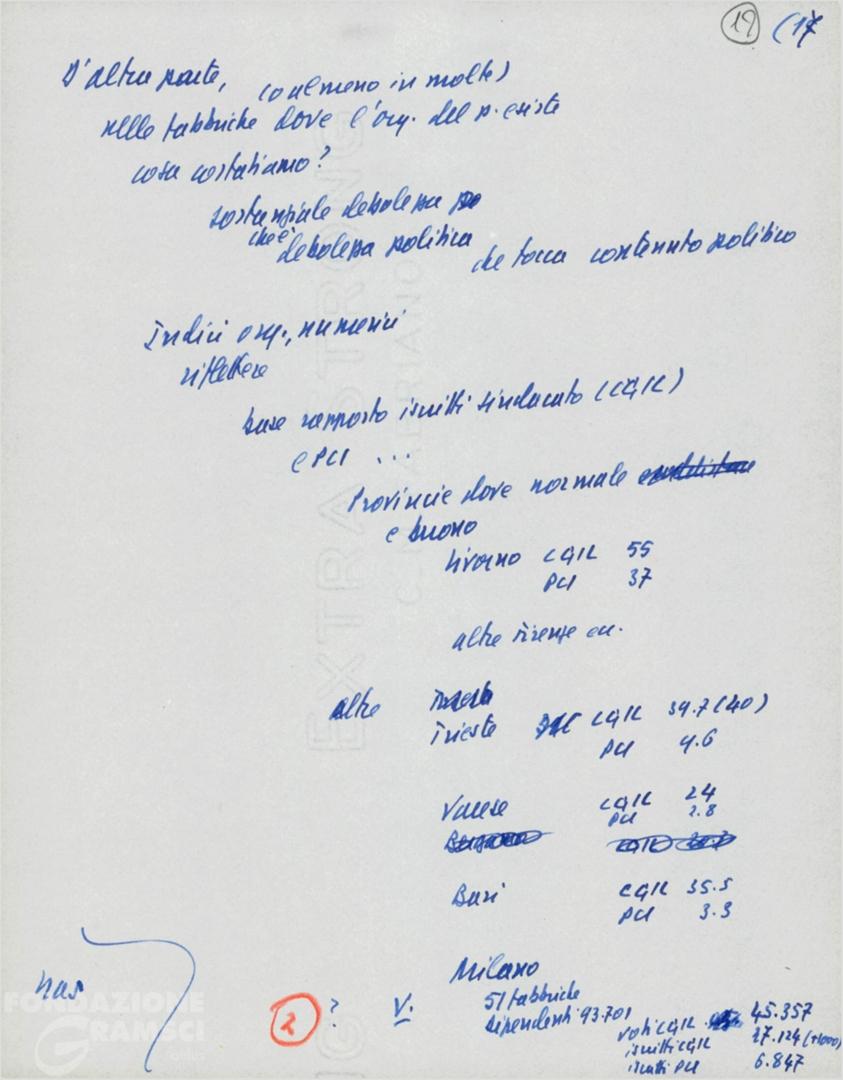 19 (17
D'altra parte, (o almeno in molte)
nelle fabbriche dove l'org. del p. esiste
cosa costatiamo?
sostanziale debolezza
cioè
debolezza politica che tocca contenuto politico
Indici org., numerici
riflettere
base rapporto iscritti sindacato (CGIL)
e PCI ...
Provincie dove normale
e buono
Livorno CGIL 55
PCI 37
altre Firenze ecc.
altre
Trieste CGIL 39.7 (40)
PCI 4.6
Varese CGIL 24
PCI 2.8
Bari CGIL 35.5
PCI 3.3
nas
Milano
2 ? V. 51 fabbriche
dipendenti 93.701
voti CGIL 45.357
iscritti CGIL 27.124 (+1000)
iscritti PCI 6.847
EXTRA STRONG
FONDAZIONE
GRAMSCI